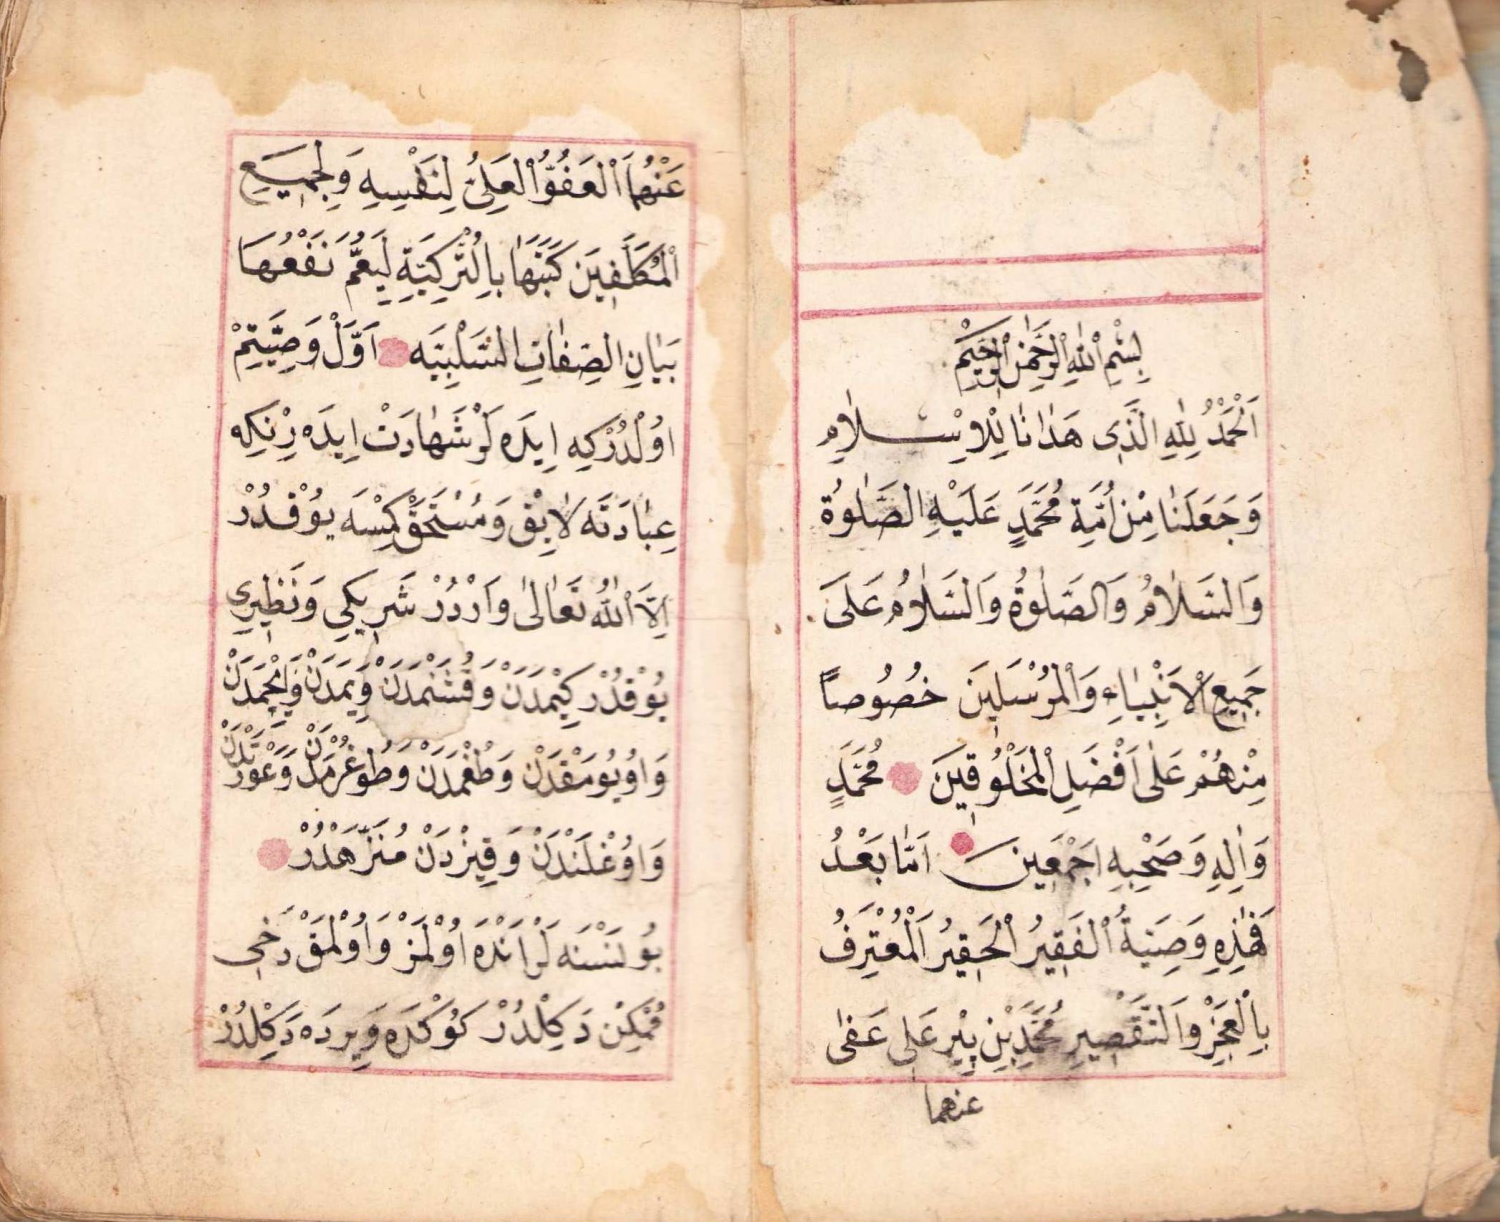 بِسْمِ اللّٰهِ الرَّحْمٰنِ الرَّحِيمِ
اَلْحَمْدُ لِلّٰهِ الَّذِى هَدٰانَا لِلْاِسْلَامِ
وَجَعَلَنَا مِنْ اُمَّةِ مُحَمَّدٍ عَلَيْهِ الصَّلٰوةُ
وَالسَّلَامُ وَالصَّلٰوةُ وَالسَّلَامُ عَلَى
جَمِيعِ الْاَنْبِيَاءِ وَالْمُرْسَلِينَ خُصُوصاً
مِنْهُمْ عَلٰى اَفْضَلِ الْمَخْلُوقِينَ مُحَمَّدٍ
وَاٰلِهِ وَصَحْبِهِ اَجْمَعِينَ اَمَّا بَعْدُ
فَهٰذِهِ وَصِيَّةُ الْفَقِيرُ الْحَقِيرُ اَلْمُعْتَرِفُ
بِالْعَجْزِ وَالتَّقْصِيرِ مُحَمَّدِ بْنِ پِيرِ عَلِى عَفٰى
عنهما
عَنْهُمَا الْعَفُوُّ الْعَلِىُّ لِنَفْسِهِ وَلِجَمِيعِ
الْمُكَلَّفِينَ كَتَبَهَا بِالتُّرْكِيَّةِ لِيَعُمَّ نَفْعُهَا
بَيَانِ الصِّفَاتِ السَّلْبِيَّه اَوَّلْ وَصِيَّتِمْ
اوُلْدُرْكِه اِيدَه لَرْ شَهَادَتْ اِيدَه رِنكِه
عِبَادَتَه لَايِقْ وَمُسْتَحَقْ كِمْسَه يُوْقدُرْ
اِلَّا اللّٰهُ تَعَالىٰ وَارْدُرْ شَرِيكِي وَنَظِيرِي
يُوْقدُرْ يِيْمَدَنْ وَ اِيچْمَدَنْ
وَاوُيُومَقْدَنْ وَطُغْمَدَنْ وَطُوغُرْمَدَنْ وَعَوْرَتْدَنْ
وَاوُغْلَنْدَنْ وَقِيزْدَنْ مُنَزَّهْدُرْ
بُو نَسْنَه لَرْ اَنْدَه اوُلْمَزْ وَاوُلْمَقْ دَخِى
مُمْكِنْ دَكِلْدُرْ كُوْكْدَه وَيِرْدَه دَكِلْدُرْ